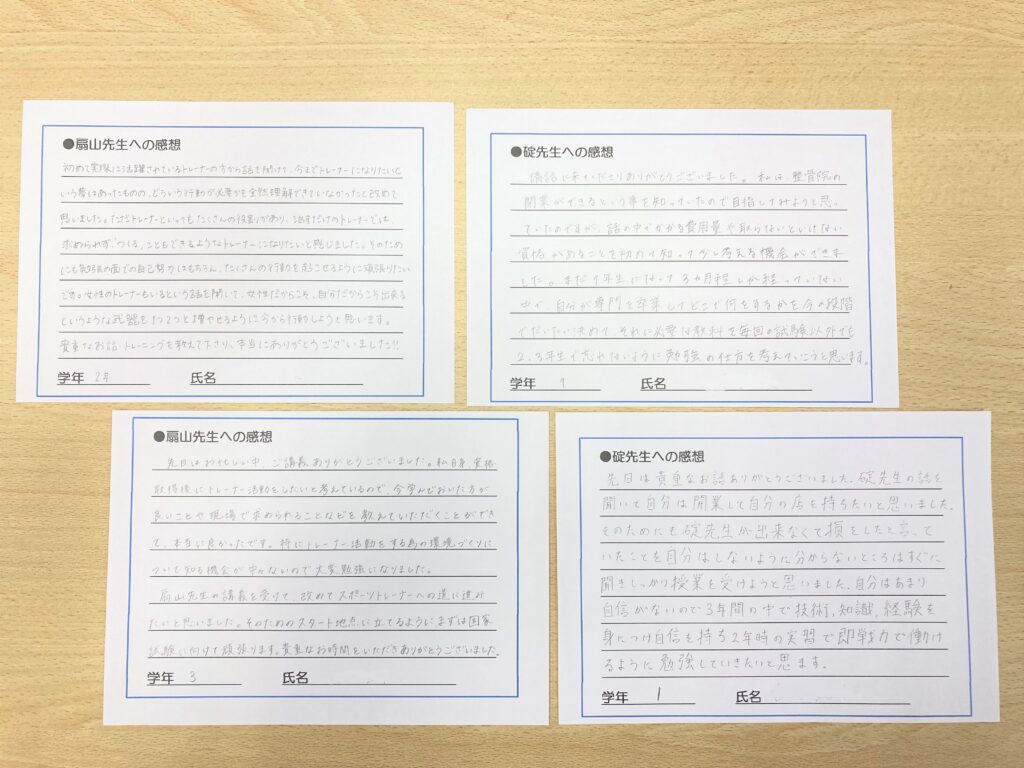 ●扇山先生への感想
初めて実際に活躍されているトレーナーの方から話を聞けて、今までトレーナーになりたいと
いう夢はあったものの、どういう行動が必要かを全然理解できていなかったと改めて
思いました。ただトレーナーといってもたくさんの役割があり、治すだけのトレーナーでは、
求められず、"つくる"こともできるようなトレーナーになりたいと感じました。そのため
にも勉強の面での自己努力はもちろん、たくさんの行動を起こせるように頑張りたい
です。女性のトレーナーもいるという話を聞いて、女性だからこそ、自分だからこそ出来る
というような武器を1つ2つと増やせるように今から行動しようと思います。
貴重なお話・トレーニングを教えて下さり、本当にありがとうございました!!
学年 2年 氏名
●碇先生への感想
講話に来てくださりありがとうございました。私は、整骨院の
開業ができるという事を知っていたので目指してみようと思っ
ていたのですが、話の中でかかる費用量や取らないといけない
資格があることを初めて知って少し考える機会ができま
した。まだ1年生になって3ヵ月程しか経っていない
中で、自分が専門を卒業してどこで何をするかを今の段階
でだいたい決めて、それに必要な教科を毎回の試験以外でも
2、3年生で忘れないように勉強の仕方を考えていこうと思います。
学年 1 氏名
●扇山先生への感想
先日はお忙しい中、ご講義ありがとうございました。私自身、資格
取得後にトレーナー活動をしたいと考えているので、今学んでおいた方が
良いことや現場で求められることなどを教えていただくことができ
て、本当に良かったです。特にトレーナー活動をする為の環境づくりに
ついて知る機会が中々ないので大変勉強になりました。
扇山先生の講義を受けて、改めてスポーツトレーナーへの道に進み
たいと思いました。そのためのスタート地点に立てるようにまずは国家
試験に向けて頑張ります。貴重なお時間をいただきありがとうございました。
学年 3 氏名
●碇先生への感想
先日は貴重なお話ありがとうございました。碇先生の話を
聞いて自分は開業して自分の店を持ちたいと思いました。
そのためにも碇先生が出来なくて損をしたと言って
いたことを自分はしないように分からないところはすぐに
聞きしっかり授業を受けようと思いました。自分はあまり
自信がないので3年間の中で技術、知識、経験を
身につけ自信を持ち2年時の実習で即戦力で働け
るように勉強していきたいと思います。
学年 1 氏名